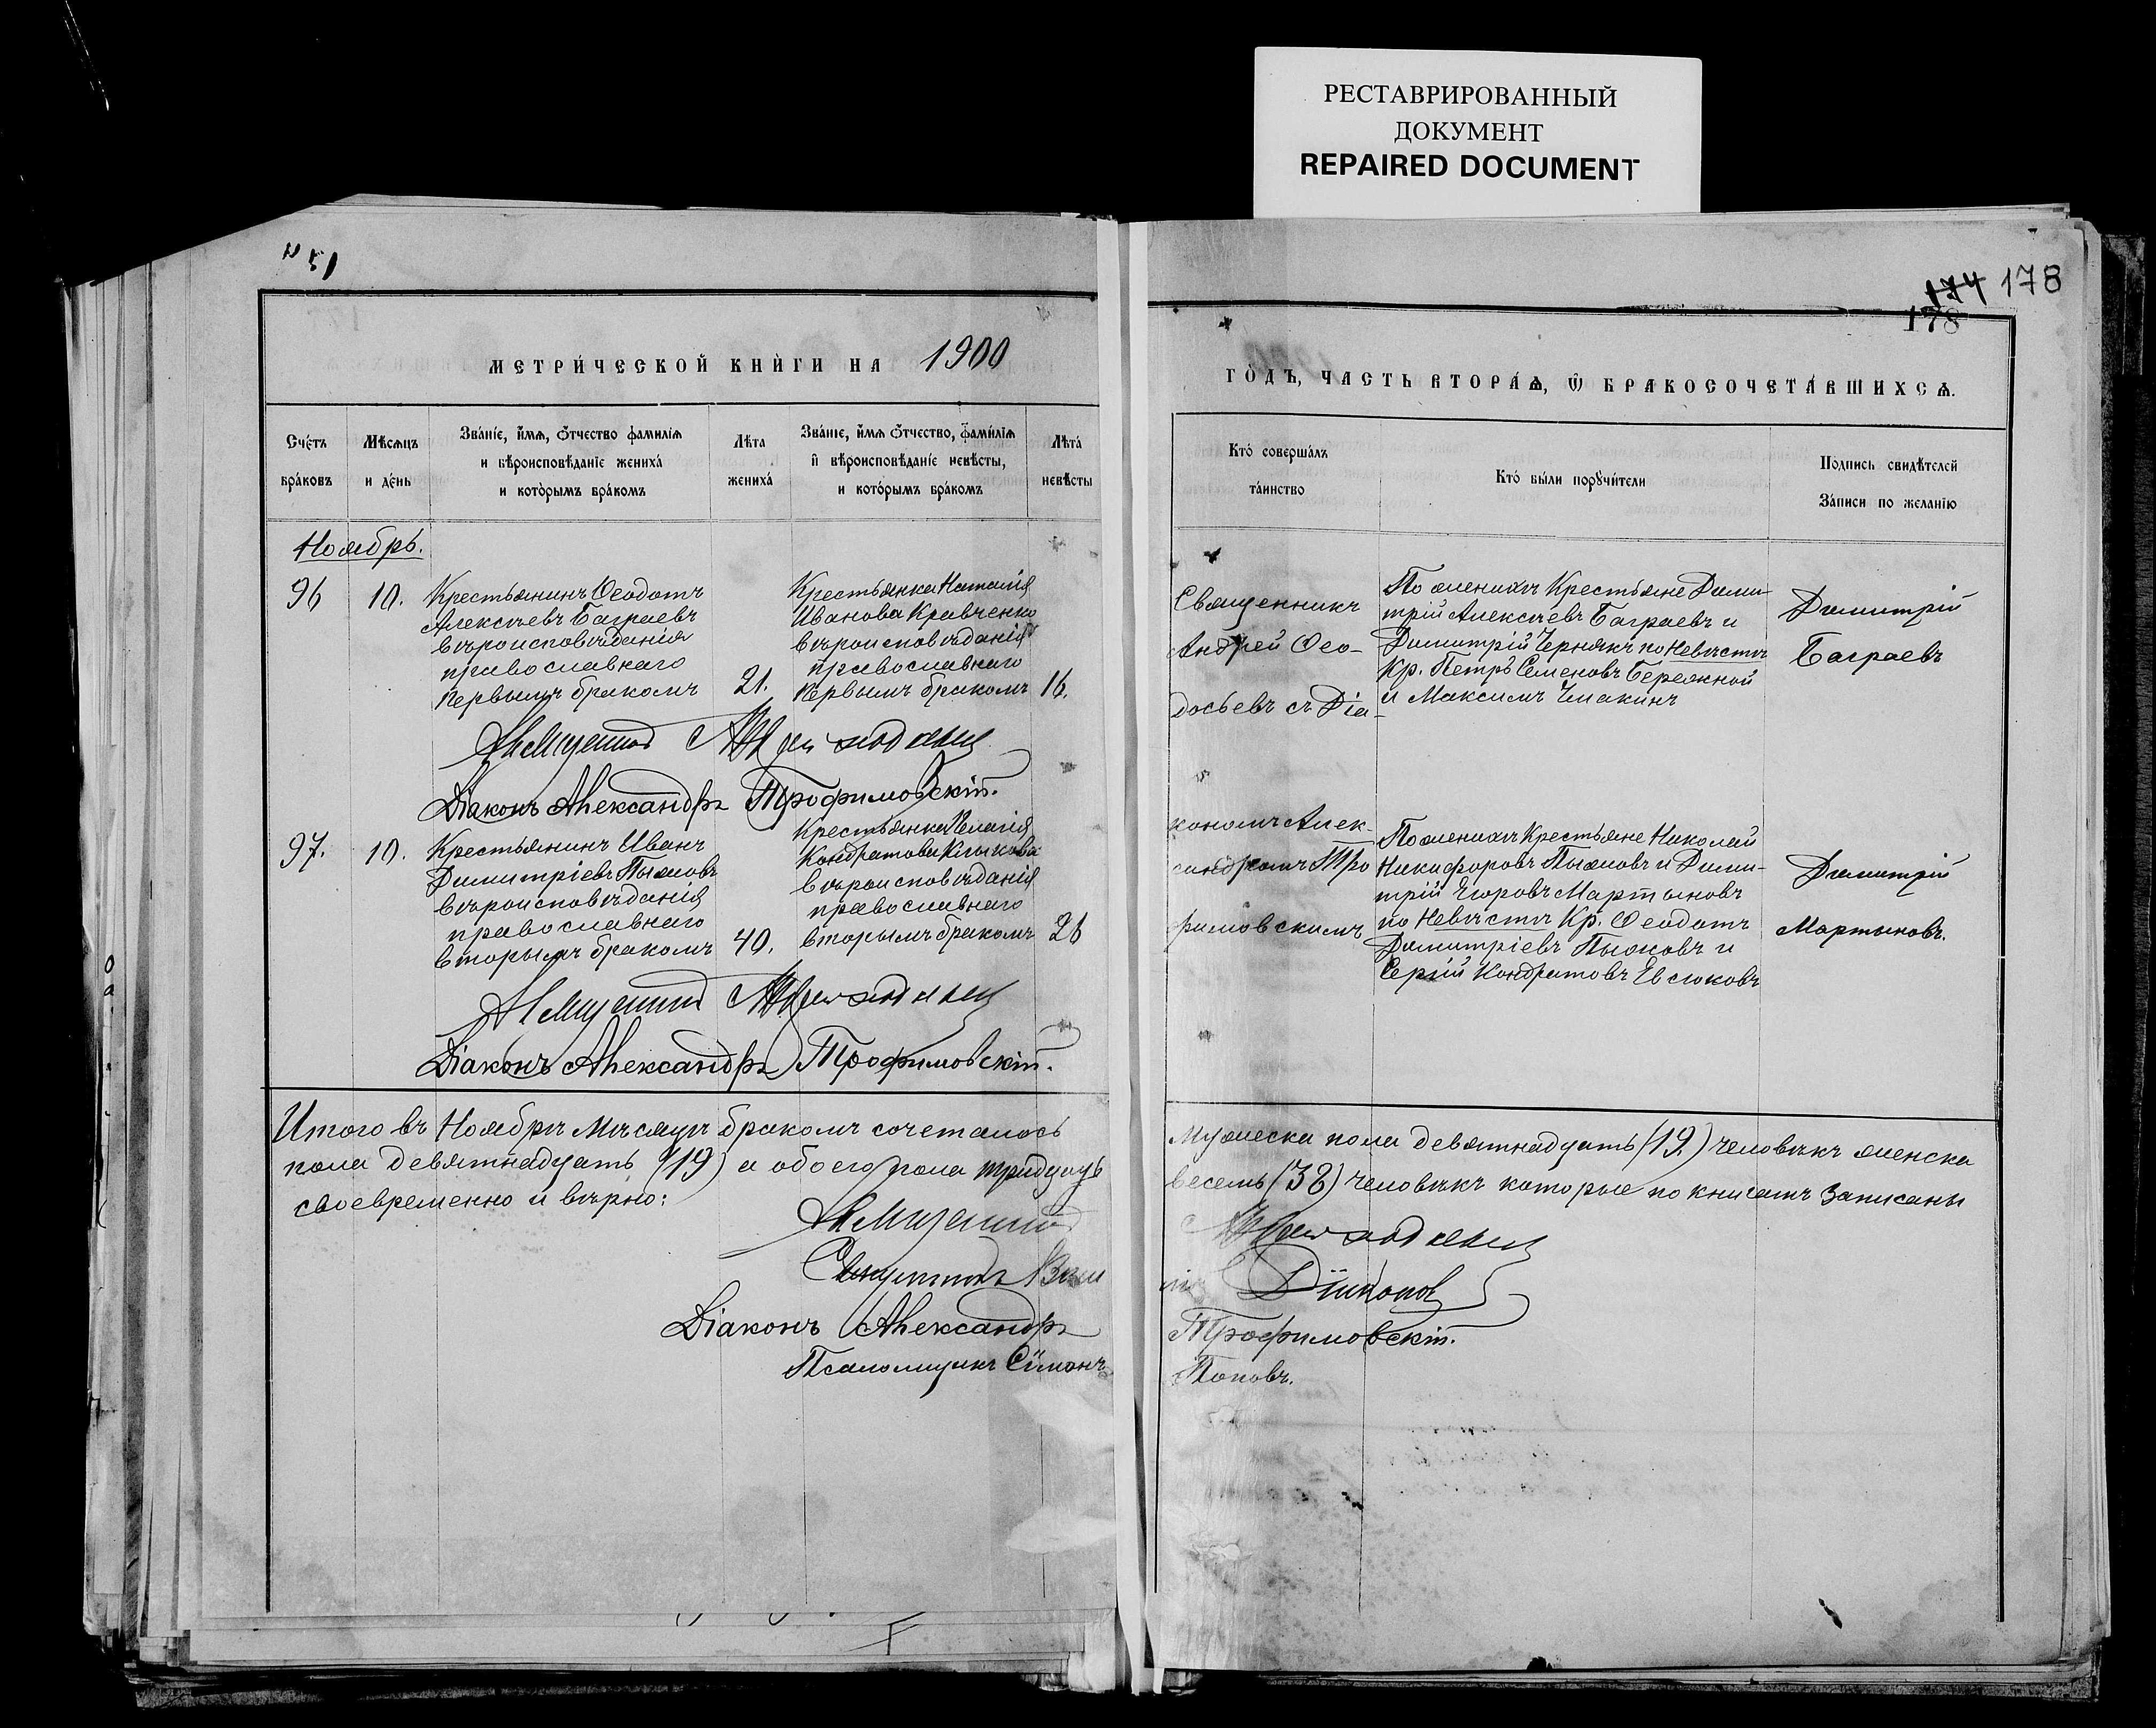 РЕСТАВРИРОВАННЫЙ
ДОКУМЕНТ
REPAIRED DOCUMENT
174 178
178
МЕТРИ́ЧЕСКОЙ КНИ́ГИ НА 1900
ГО́ДЪ, ЧАСТЬ ВТОРА́Ѧ, Ѿ БРАКОСОЧЕТА́ВШИХСѦ.
Сче́тъ бра́ковъ
Мѣ́сѧцъ и де́нь
Зва́нїе, и́мѧ, ѻ́тчество фамилїѧ
и вѣроисповѣ́данїе жениха́
и кото́рымъ бра́комъ
Лѣ́та жениха́
Зва́нїе, и́мѧ ѻ́тчество, фами́лїѧ
и вѣроисповѣ́данїе невѣ́сты,
и кото́рымъ бра́комъ
Лѣта́ невѣ́сты
Кто́ соверша́лъ
та́инство
Кто́ бы́ли порꙋчи́тели
По́дпись свидѣ́телей
За́писи по жела́нїю
Ноябрь.
96
10.
Крестьянинъ Ѳеодотъ
Алексѣевъ Баграевъ
вѣроисповѣданія
православнаго
первымъ бракомъ
21.
Крестьянка Наталія
Иванова Кравченко
вѣроисповѣданія
православнаго
первымъ бракомъ
16.
Священникъ
Андрей Ѳео-
досьевъ съ Діа-
кономъ Алек-
сандромъ Тро
фимовскимъ
По женихѣ Крестьяне Дими-
трій Алексѣевъ Баграевъ и
Димитрій Чернякъ по Невѣстѣ
Кр. Петръ Семеновъ Бережной
и Максимъ Чмакинъ
Димитрій
Баграевъ
Діаконъ Александръ Трофимовскій.
97.
10.
Крестьянинъ Иванъ
Димитріевъ Пыжовъ
вѣроисповѣданія
православнаго
вторымъ бракомъ
40.
Крестьянка Пелагія
Кондратова Клыкова
вѣроисповѣданія
православнаго
вторымъ бракомъ
26
По женихѣ Крестьяне Николай
Никифоровъ Пыжовъ и Дими-
трій Егоровъ Мартыновъ
по Невѣстѣ Кр. Ѳеодотъ
Димитріевъ Пыжовъ и
Сергій Кондратовъ Евсюковъ
Димитрій
Мартыновъ.
Діаконъ Александръ Трофимовскій.
Итого въ Ноябрѣ Мѣсяцѣ бракомъ сочеталось мужеска пола девятнадцать (19) человѣкъ женска
пола девятнадцать (19) а обоего пола тридцать восемь (38) человѣкъ которые по книгамъ записаны
своевременно и вѣрно:
Діаконъ Александръ Трофимовскій.
Псаломщикъ Сімонъ Поповъ.